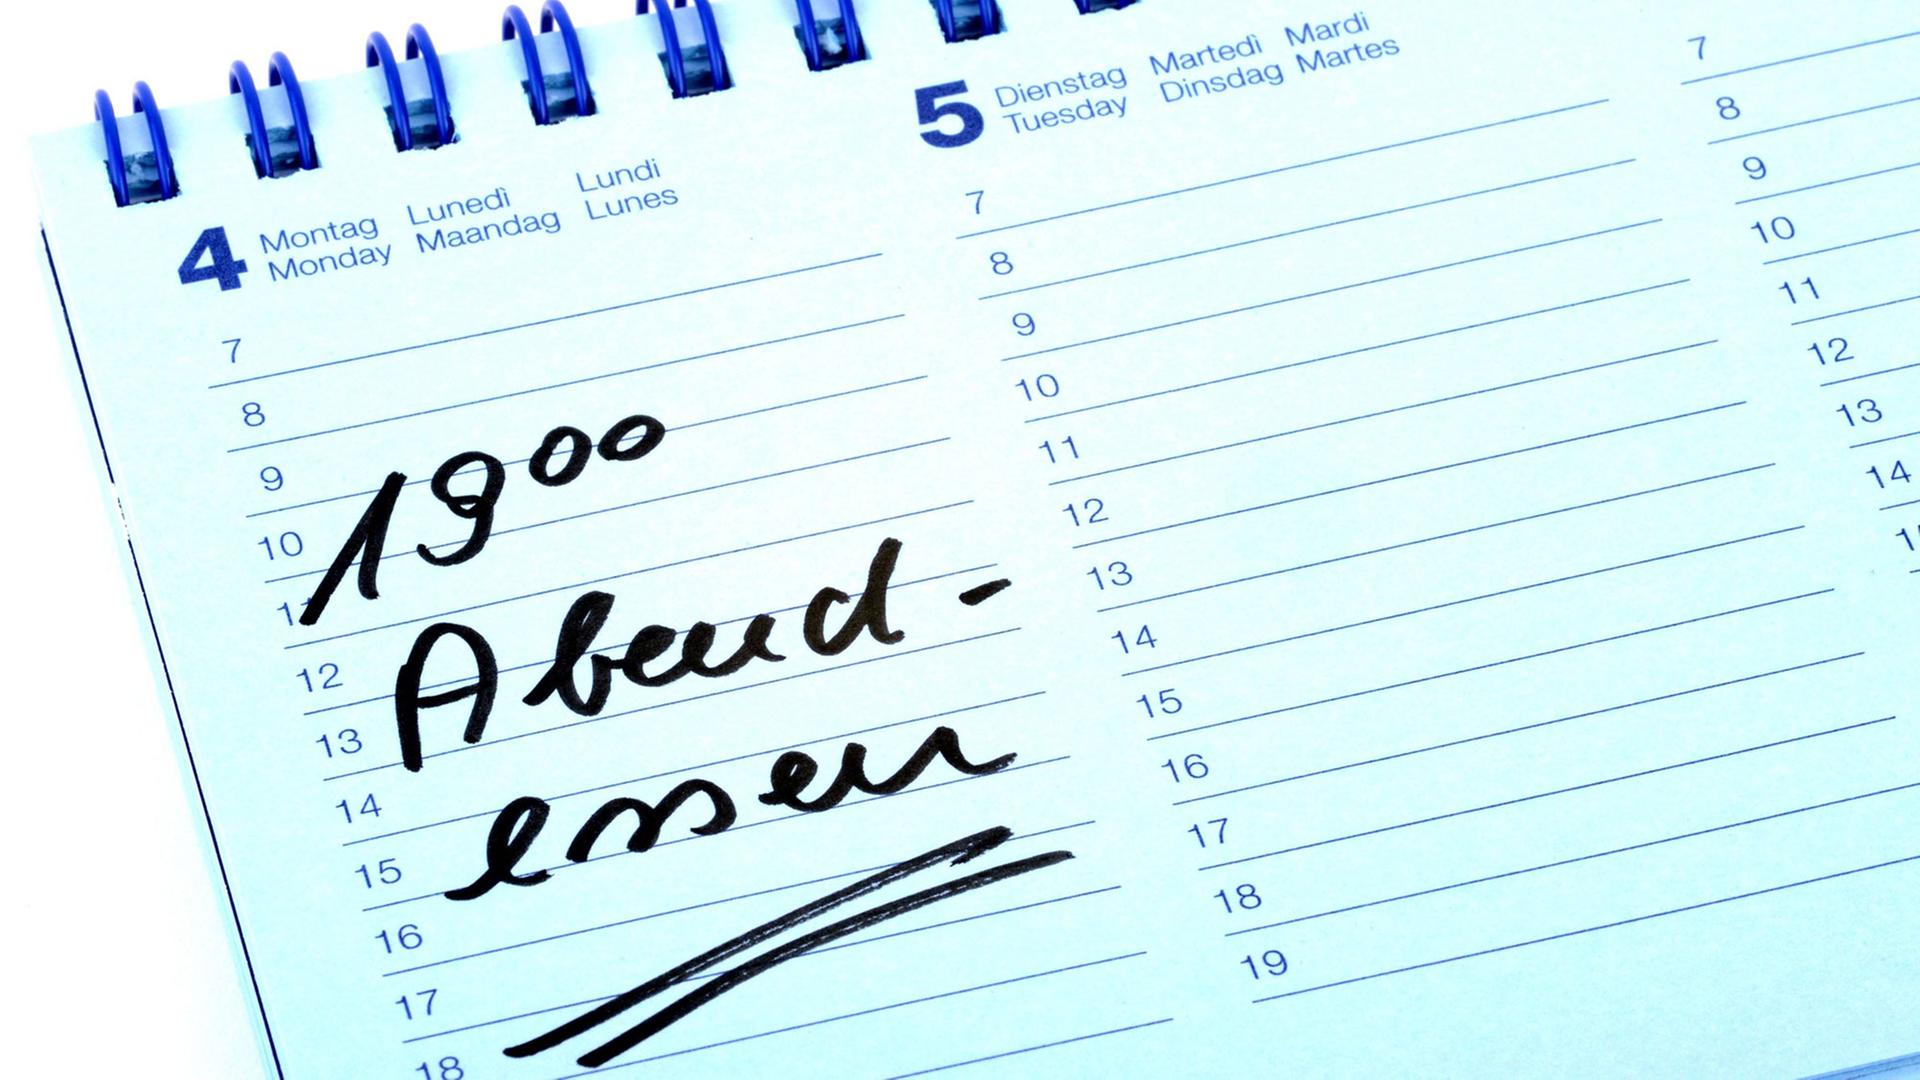 4 Montag Lunedì Lundi
Monday Maandag Lunes
7
8
9
10
11
12
13
14
15
16
17
18
19⁰⁰
Abend-
essen
5 Dienstag Martedì Mardi
Tuesday Dinsdag Martes
7
8
9
10
11
12
13
14
15
16
17
18
19
7
8
9
10
11
12
13
14